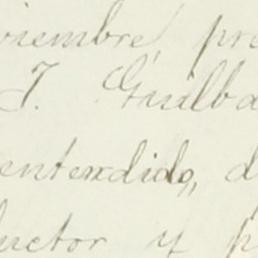 viembre, pr
J. Guilba
entendido, d
ductor y p